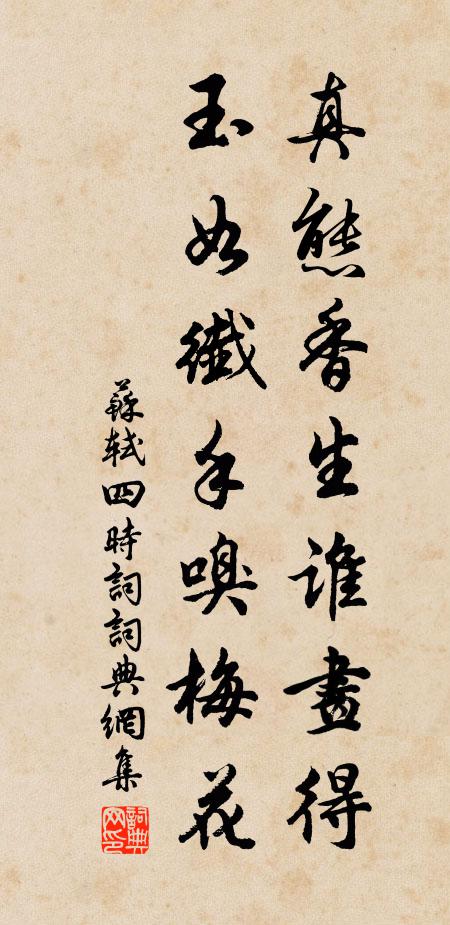 真態香生誰畫得
玉如纖手嗅梅花
蘇軾四時詞詞典網集
詞典网印